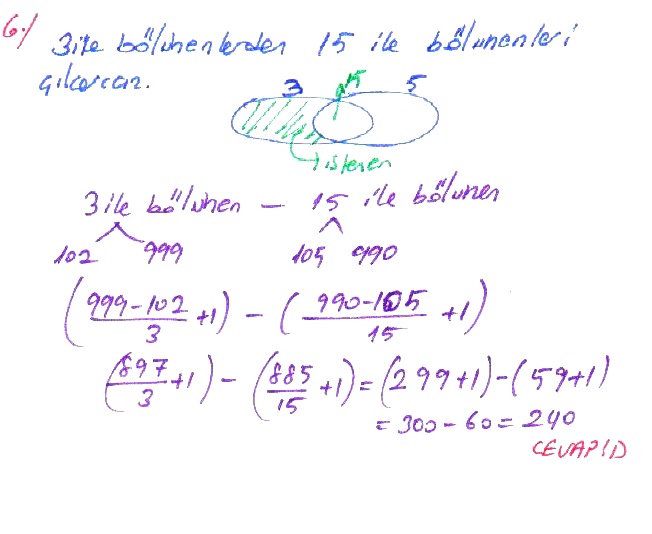 6.)
3 ile bölünenlerden 15 ile bölünenleri
çıkarcaz.
3 15 5
istenen
3 ile bölünen - 15 ile bölünen
102 999 105 990
(999-102/3 +1) - (990-105/15 +1)
(897/3 +1) - (885/15 +1) = (299+1)-(59+1)
= 300 - 60 = 240
CEVAP: D